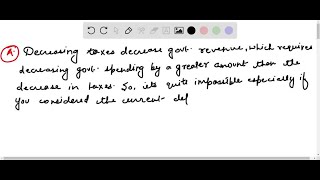 A. Decreasing taxes decrease govt. revenue, which requires
decreasing govt. spending by a greater amount than the
decrease in taxes. So, its quit impossible especially if
you considered the current def